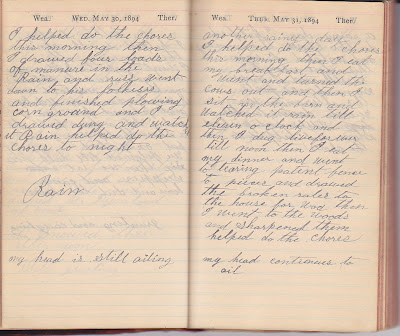 Wea. WED. MAY 30, 1894 Ther.
I helped do the chores
this morning then
I drawed four loads
of manure in the
Rain and russ went
down to his fathers
and finished plowing
corn ground and I
drawed dung and watch
it Rain helped do the
chores to night
Rain
my head is still ailing
Wea. THUR. MAY 31, 1894 Ther.
another rainey day
I helped do the chores
this morning then I eat
my breakfast and
went and turned the
cows out and then I
sit in the barn and
watched it rain till
eleven o clock and
then I dug
till noon then I eat
my dinner and went
to tearing patent fence
to pieces and drawed
the broken rales to
the house for wod then
I went to the woods
and sharpened them
helped do the chores
my head continues to
ail